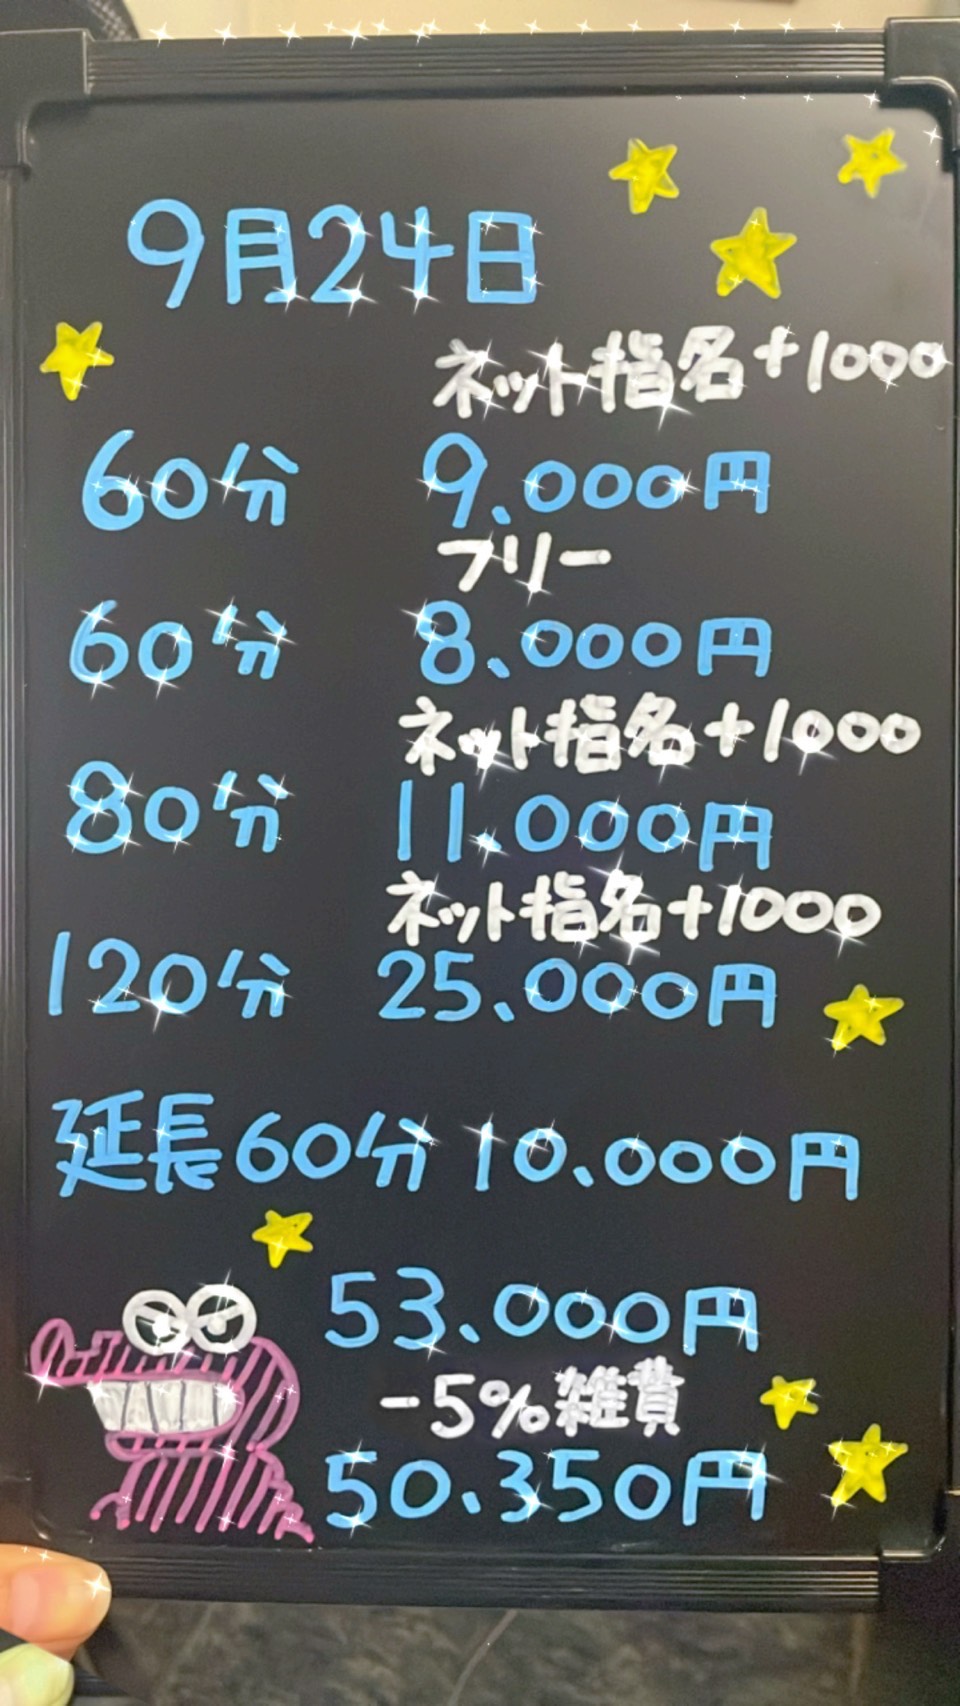 9月24日
ネット指名+1000
60分 9.000円
フリー
60分 8.000円
ネット指名+1000
80分 11.000円
ネット指名+1000
120分 25.000円
延長60分 10.000円
53.000円
-5%雑費
50.350円